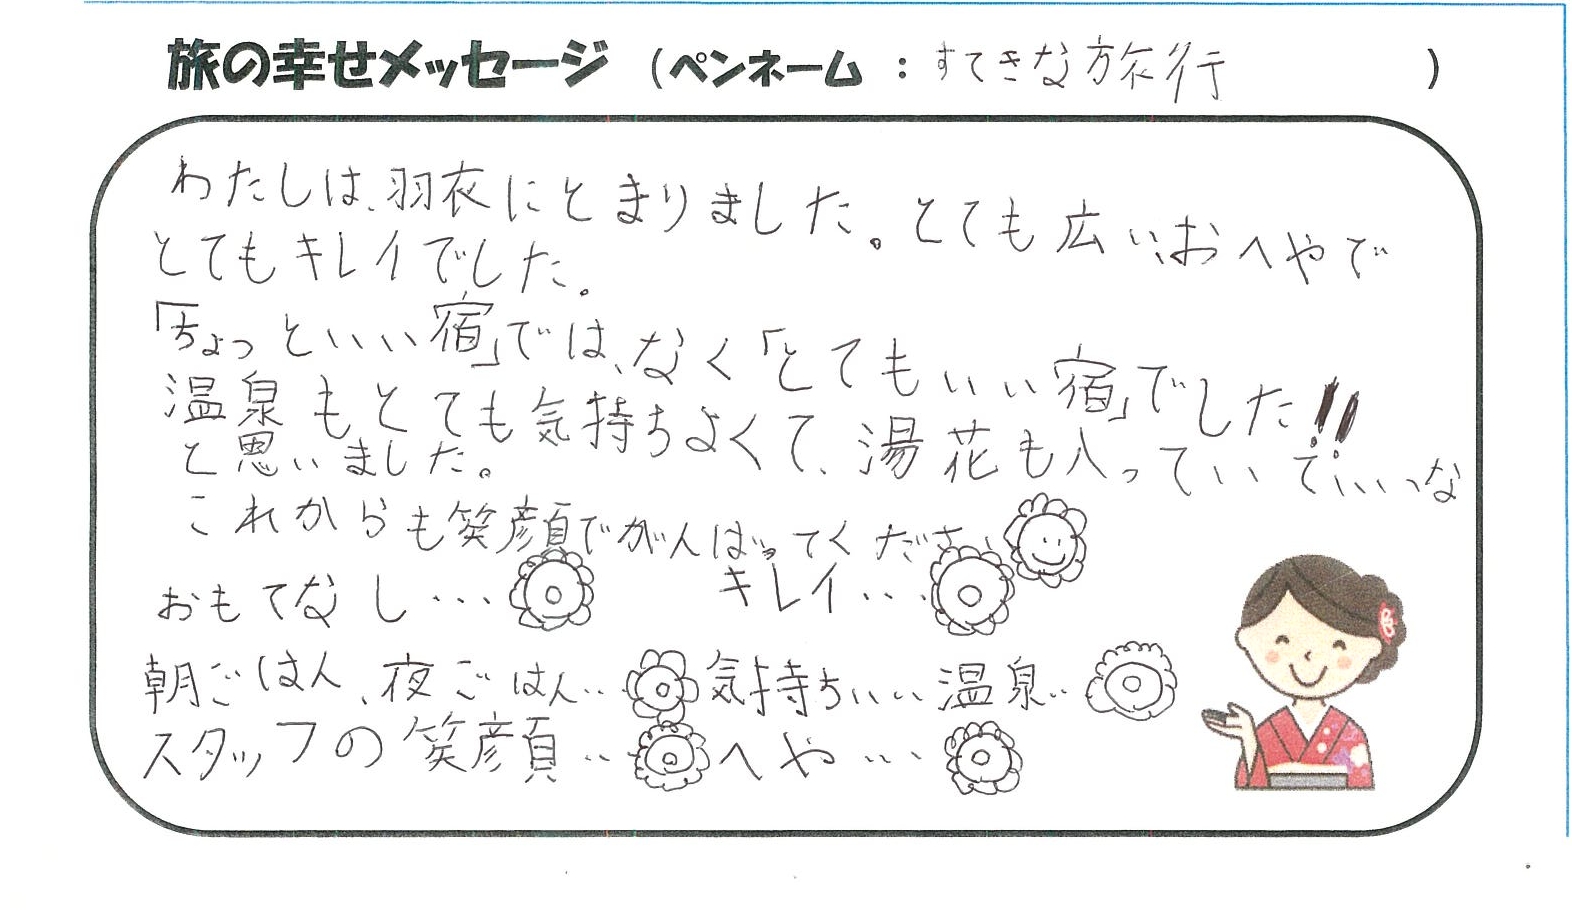 旅の幸せメッセージ (ペンネーム : すてきな旅行 )
わたしは、羽衣にとまりました。とても広いおへやで
とてもキレイでした。
「ちょっといい宿」では、なく「とてもいい宿」でした!!
温泉もとても気持ちよくて、湯花も入っていていいな
と思いました。
これからも笑顔でがんばってください
おもてなし… キレイ…
朝ごはん、夜ごはん‥ 気持ちいい温泉‥
スタッフの笑顔‥ へや…